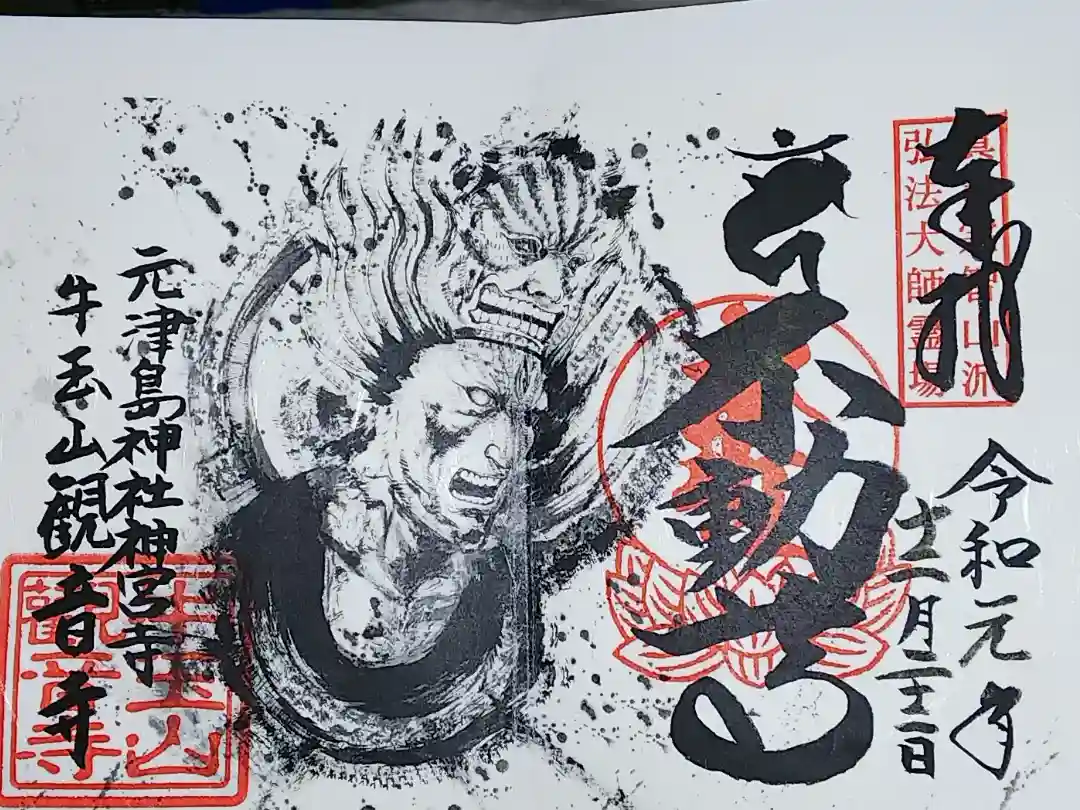 奉拝
真言宗智山派
弘法大師霊場
令和元年
十二月二十二日
不動
元津島神社神宮寺
牛玉山観音寺
牛玉山
觀音寺